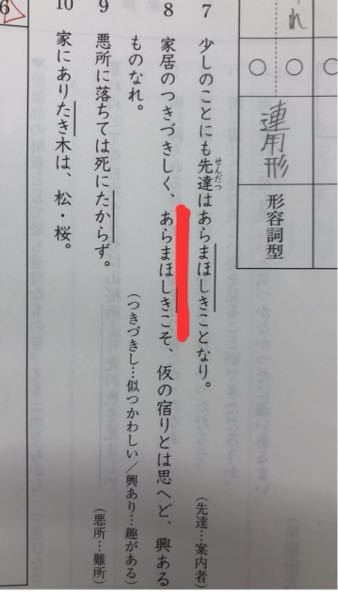 れ
連用形
形容詞型
7 少しのことにも先達はあらまほしきことなり。 (先達…案内者)
せんだつ
8 家居のつきづきしく、あらまほしきこそ、仮の宿りとは思へど、興ある
ものなれ。 (つきづきし…似つかわしい/興あり…趣がある)
9 悪所に落ちては死にたからず。 (悪所…難所)
10 家にありたき木は、松・桜。
6